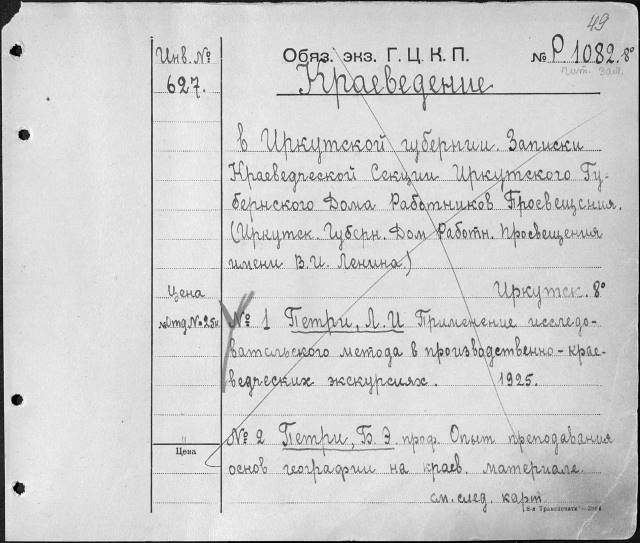 49
Инв. № Обяз. экз. Г. Ц. К. П. № Р 1082. 8°
627. чит. зал.
Краеведение
в Иркутской губернии. Записки
Краеведческой Секции Иркутского Гу-
бернского Дома Работников Просвещения.
(Иркутск. Губерн. Дом Работн. Просвещения
имени В. И. Ленина.)
Цена Иркутск. 8°
отд. № 25к.
№ 1 Петри, Л. И Применение исследо-
вательского метода в производственно-крае-
ведческих экскурсиях. 1925.
№ 2 Петри, Б. Э. проф. Опыт преподавания
Цена
основ географии на краев. материале.
см. след. карт.